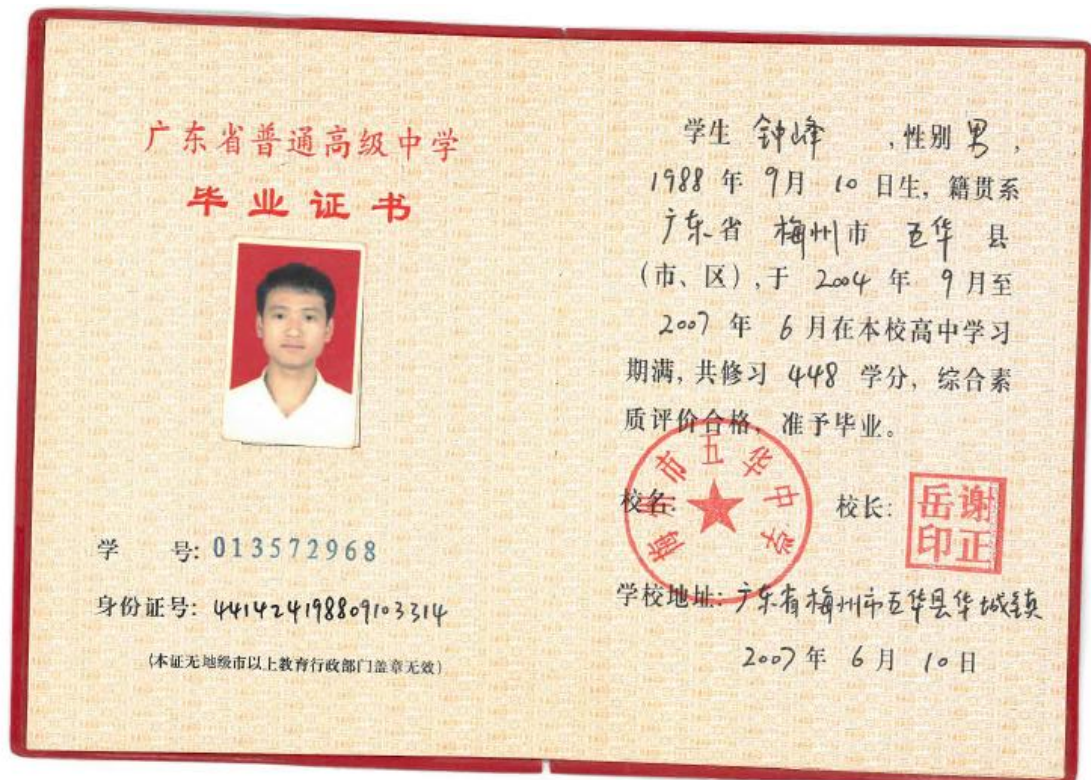 广东省普通高级中学
毕业证书
学 号: 013572968
身份证号: 441424198809103314
(本证无地级市以上教育行政部门盖章无效)
学生 钟峰 , 性别 男 ,
1988 年 9月 10 日生, 籍贯系
广东省 梅州市 五华 县
(市、区), 于 2004 年 9 月至
2007 年 6 月在本校高中学习
期满, 共修习 448 学分, 综合素
质评价合格, 准予毕业。
梅州市五华中学
校名: 校长: 谢正岳印
学校地址: 广东省梅州市五华县华城镇
2007 年 6 月 10 日